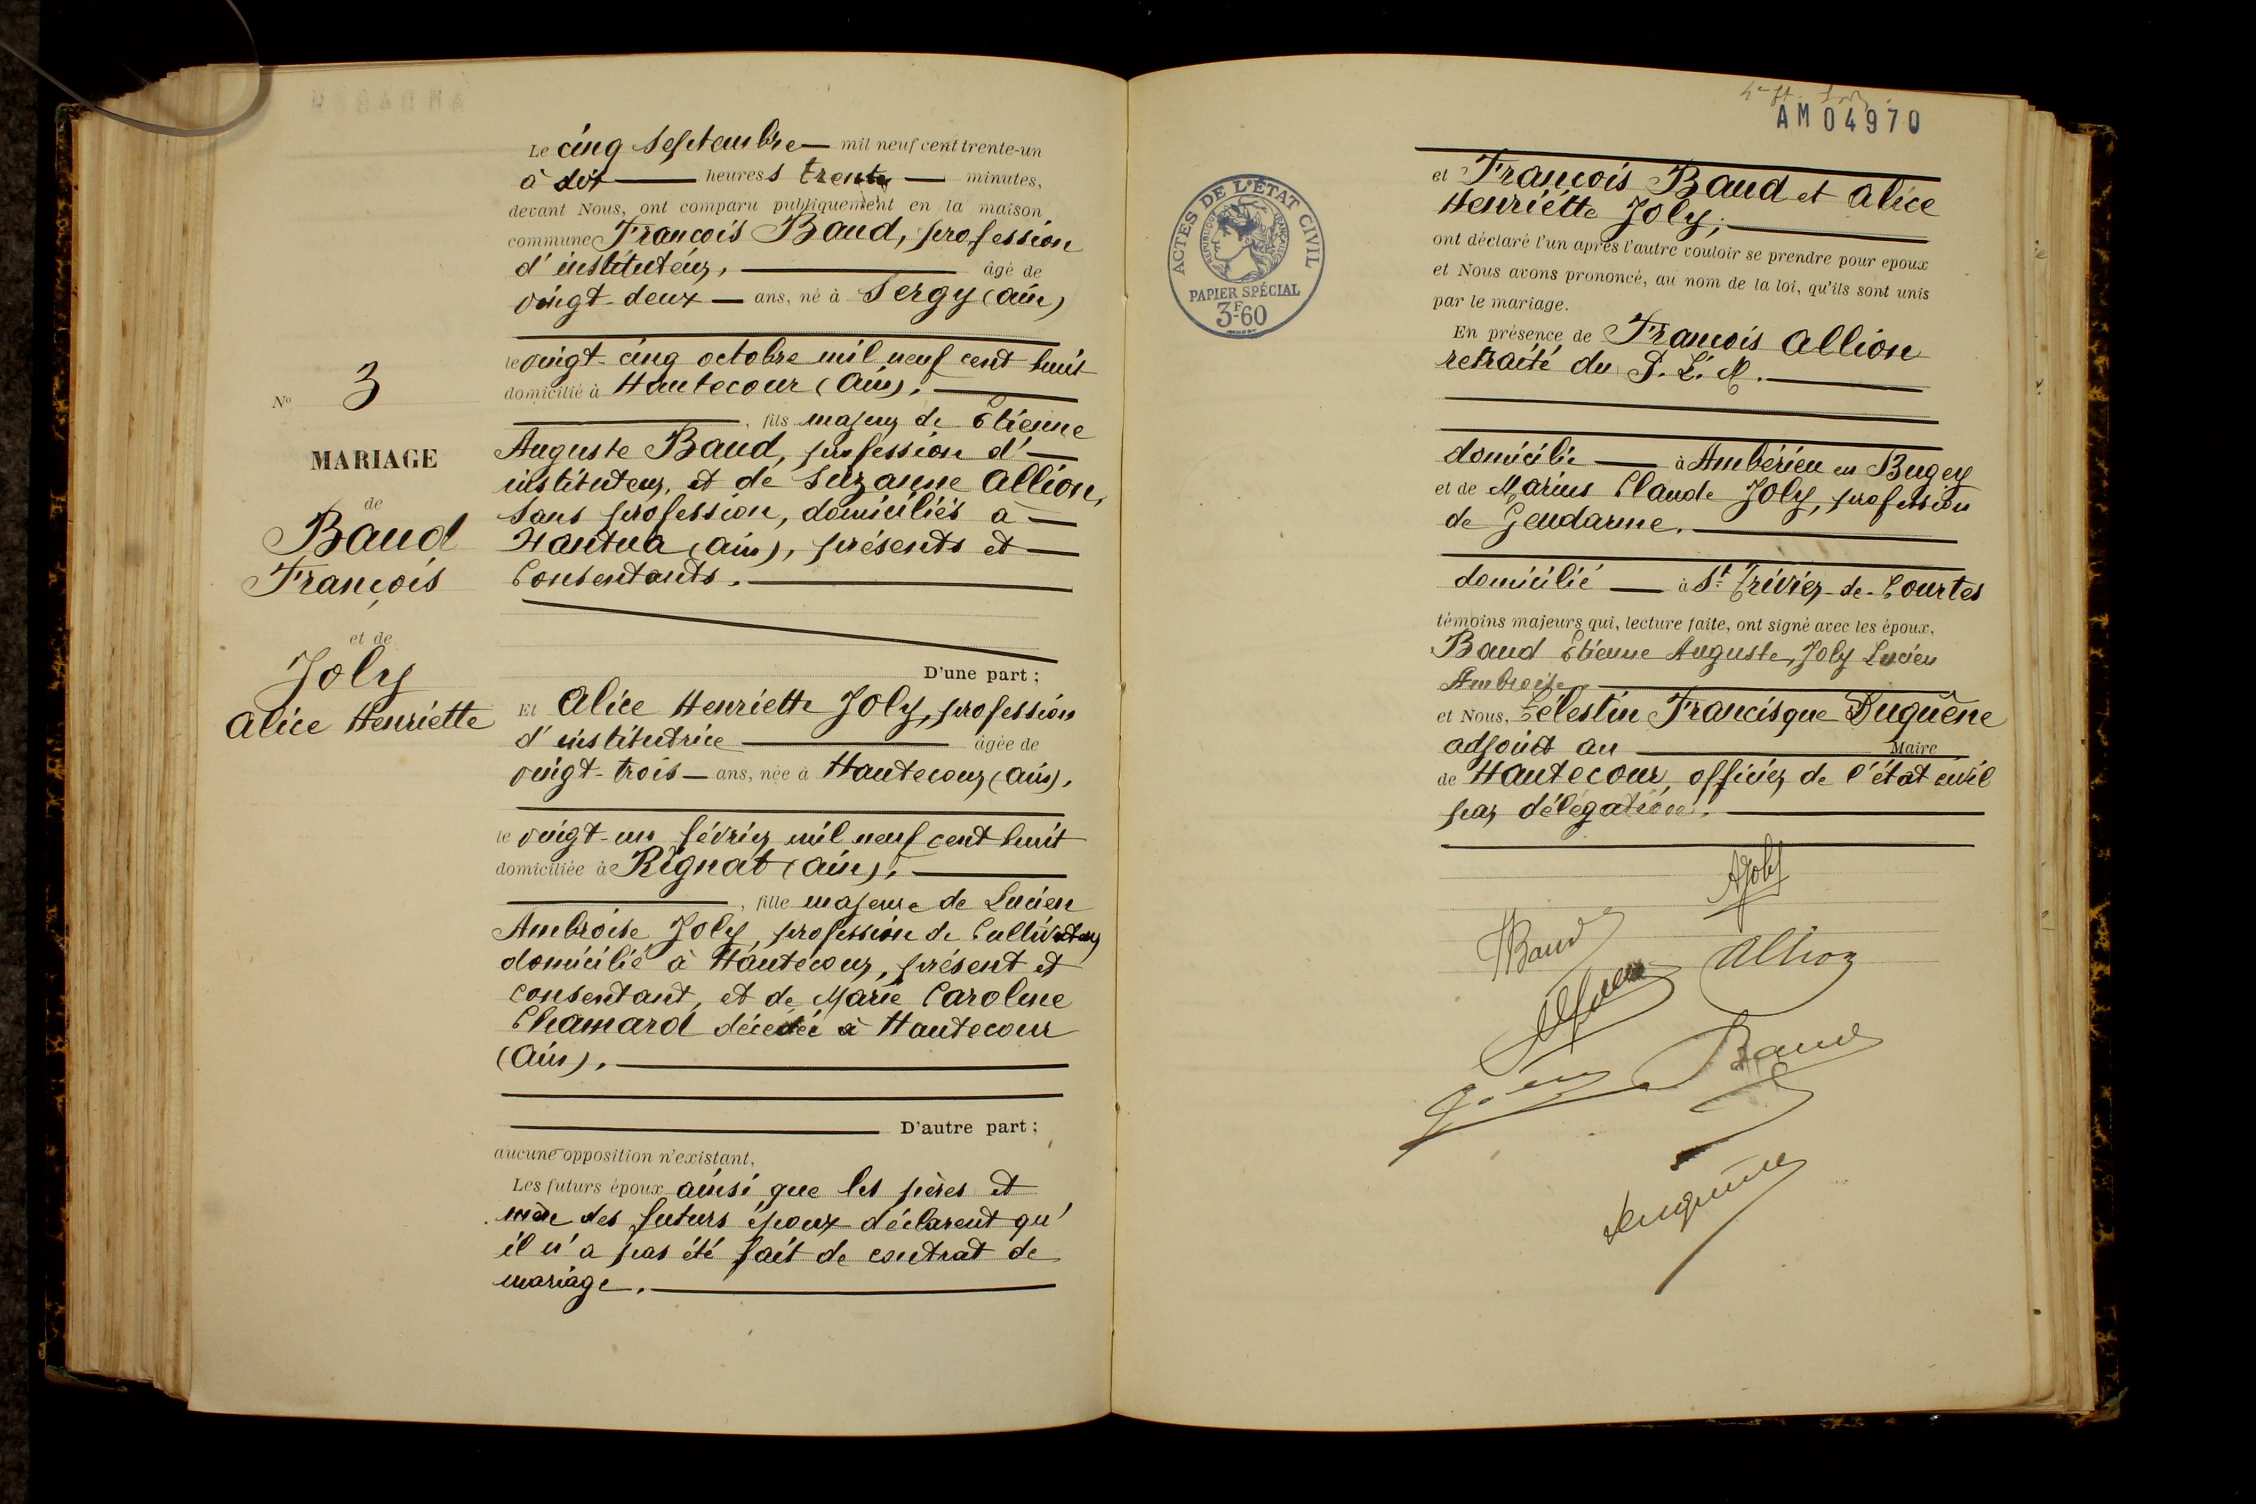 Le cinq Septembre mil neuf cent trente-un
à dix heures trente minutes,
devant Nous, ont comparu publiquement en la maison
commune François Baud, profession
d'instituteur, âgé de
vingt-deux ans, né à Sergy (Ain)
le vingt-cinq octobre mil neuf cent huit
domicilié à Hautecour (Ain),
, fils majeur de Etienne
Auguste Baud, profession d'
instituteur, et de Suzanne Allion,
sans profession, domiciliés à
Nantua (Ain), présents et
Consentants.
D'une part;
Et Alice Henriette Joly, profession
d'institutrice âgée de
vingt-trois ans, née à Hautecour (Ain),
le vingt-un février mil neuf cent huit
domiciliée à Rignat (Ain),
, fille majeure de Lucien
Ambroise Joly, profession de Cultivateur
domicilié à Hautecour, présent et
consentant, et de Marie Caroline
Chamard décédée à Hautecour
(Ain),
D'autre part;
aucune opposition n'existant,
Les futurs époux ainsi que les pères et
mère des futurs époux déclarent qu'
il n'a pas été fait de contrat de
mariage.
No 3
MARIAGE
de
Baud
François
et de
Joly
Alice Henriette
AM04970
ACTES DE L'ÉTAT CIVIL
RÉPUBLIQUE FRANÇAISE
PAPIER SPÉCIAL
3F60
et François Baud et Alice
Henriétte Joly;
ont déclaré l'un après l'autre vouloir se prendre pour époux
et Nous avons prononcé, au nom de la loi, qu'ils sont unis
par le mariage.
En présence de François Allion
retraité du P. L. M.
domicilié à Ambérieu en Bugey
et de Marius Claude Joly, profession
de Gendarme.
domicilié à St Trivier-de-Courtes
témoins majeurs qui, lecture faite, ont signé avec les époux,
Baud Etienne Auguste, Joly Lucien
Ambroise,
et Nous, Célestin Francisque Duquêne
adjoint au Maire
de Hautecour, officier de l'état civil
par délégation.
AJoly
Baud
Allion
Baud
Duquêne